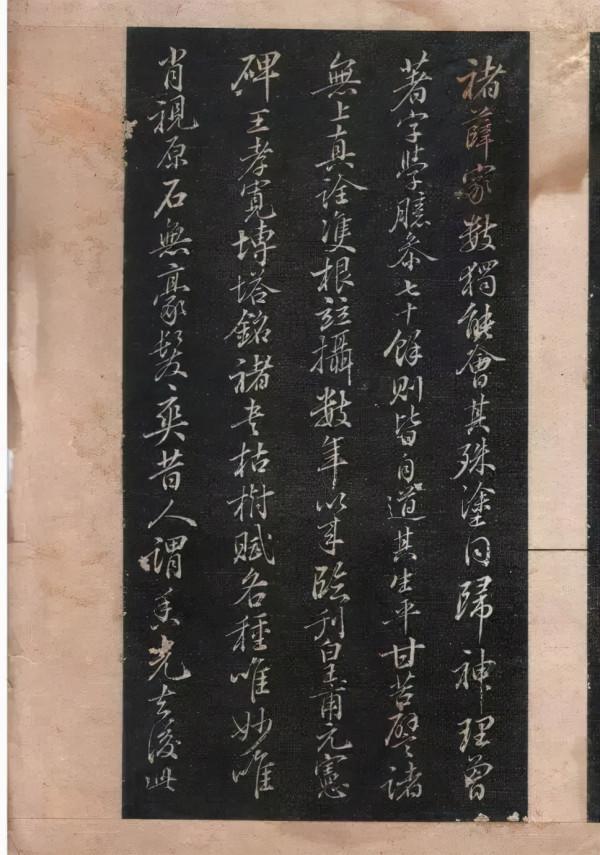 褚薛家數獨能會其殊塗同歸神理曾
著字學臆叅七十餘則皆自道其生平甘苦譬諸
無上真詮雙根竝攝數年以來臨刊皇甫元憲
碑王孝寬塼塔銘褚書枯樹賦各種唯妙唯
肖視原石無豪髮爽昔人謂香光去後此